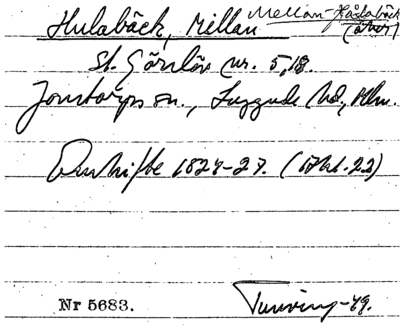 Hulabäck, Millan Mellan-Hålabäck
(åker)
St. Görslöv nr. 5,18.
Jonstorps sn., Luggude hd., Mlm.
Enskifte 1824-27. (Akt. 22)
Nr 5683. Tuneving-49.